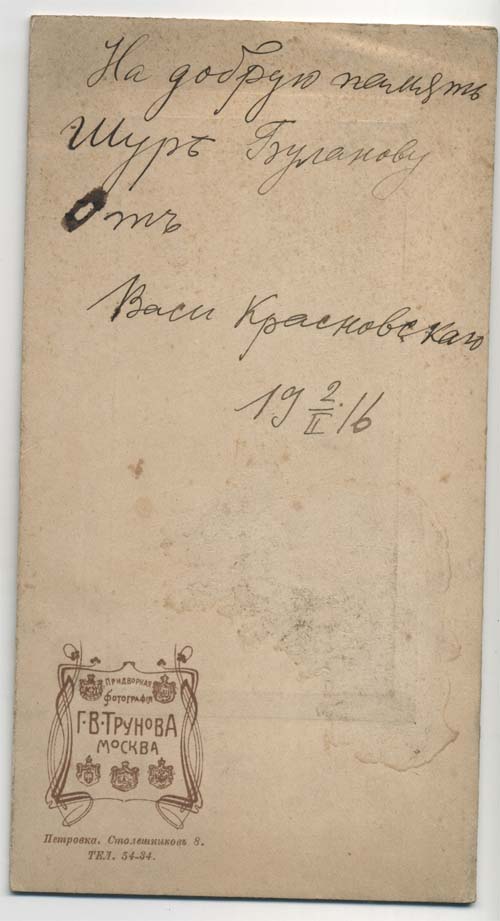 На добрую память
Шурѣ Буланову
Отъ
Васи Красновскаго
19 2/II 16
ПРИДВОРНАЯ
ФОТОГРАФІЯ
Г·В·ТРУНОВА
МОСКВА
Петровка. Столешниковъ 8.
ТЕЛ. 54-34.